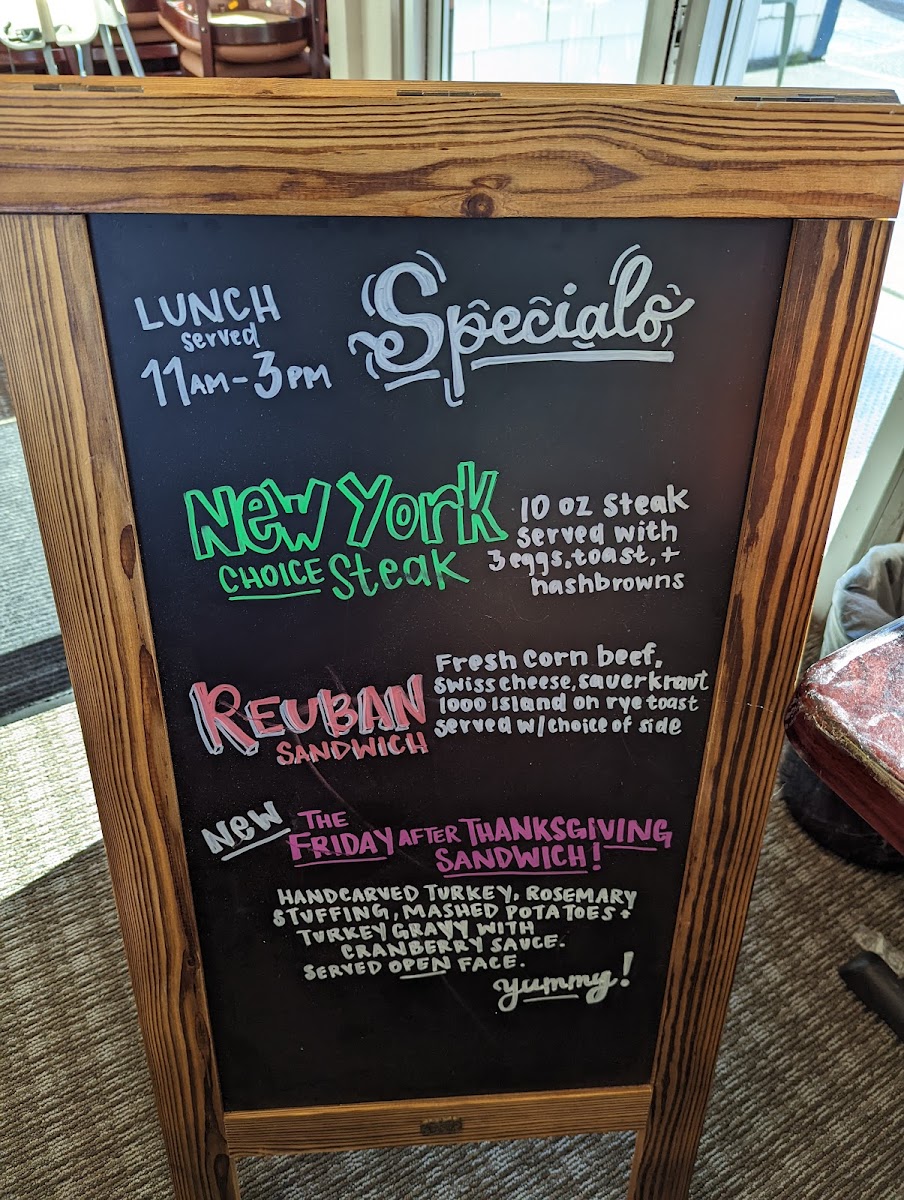 LUNCH
served
11AM-3PM
Specials
New York
CHOICE Steak
10 oz steak
served with
3 eggs, toast, +
hashbrowns
REUBAN
SANDWICH
Fresh Corn beef,
swiss cheese, sauerkraut
1000 Island on rye toast
served w/choice of side
New
THE
FRIDAY AFTER THANKSGIVING
SANDWICH!
HANDCARVED TURKEY, ROSEMARY
STUFFING, MASHED POTATOES +
TURKEY GRAVY WITH
CRANBERRY SAUCE.
SERVED OPEN FACE.
yummy!